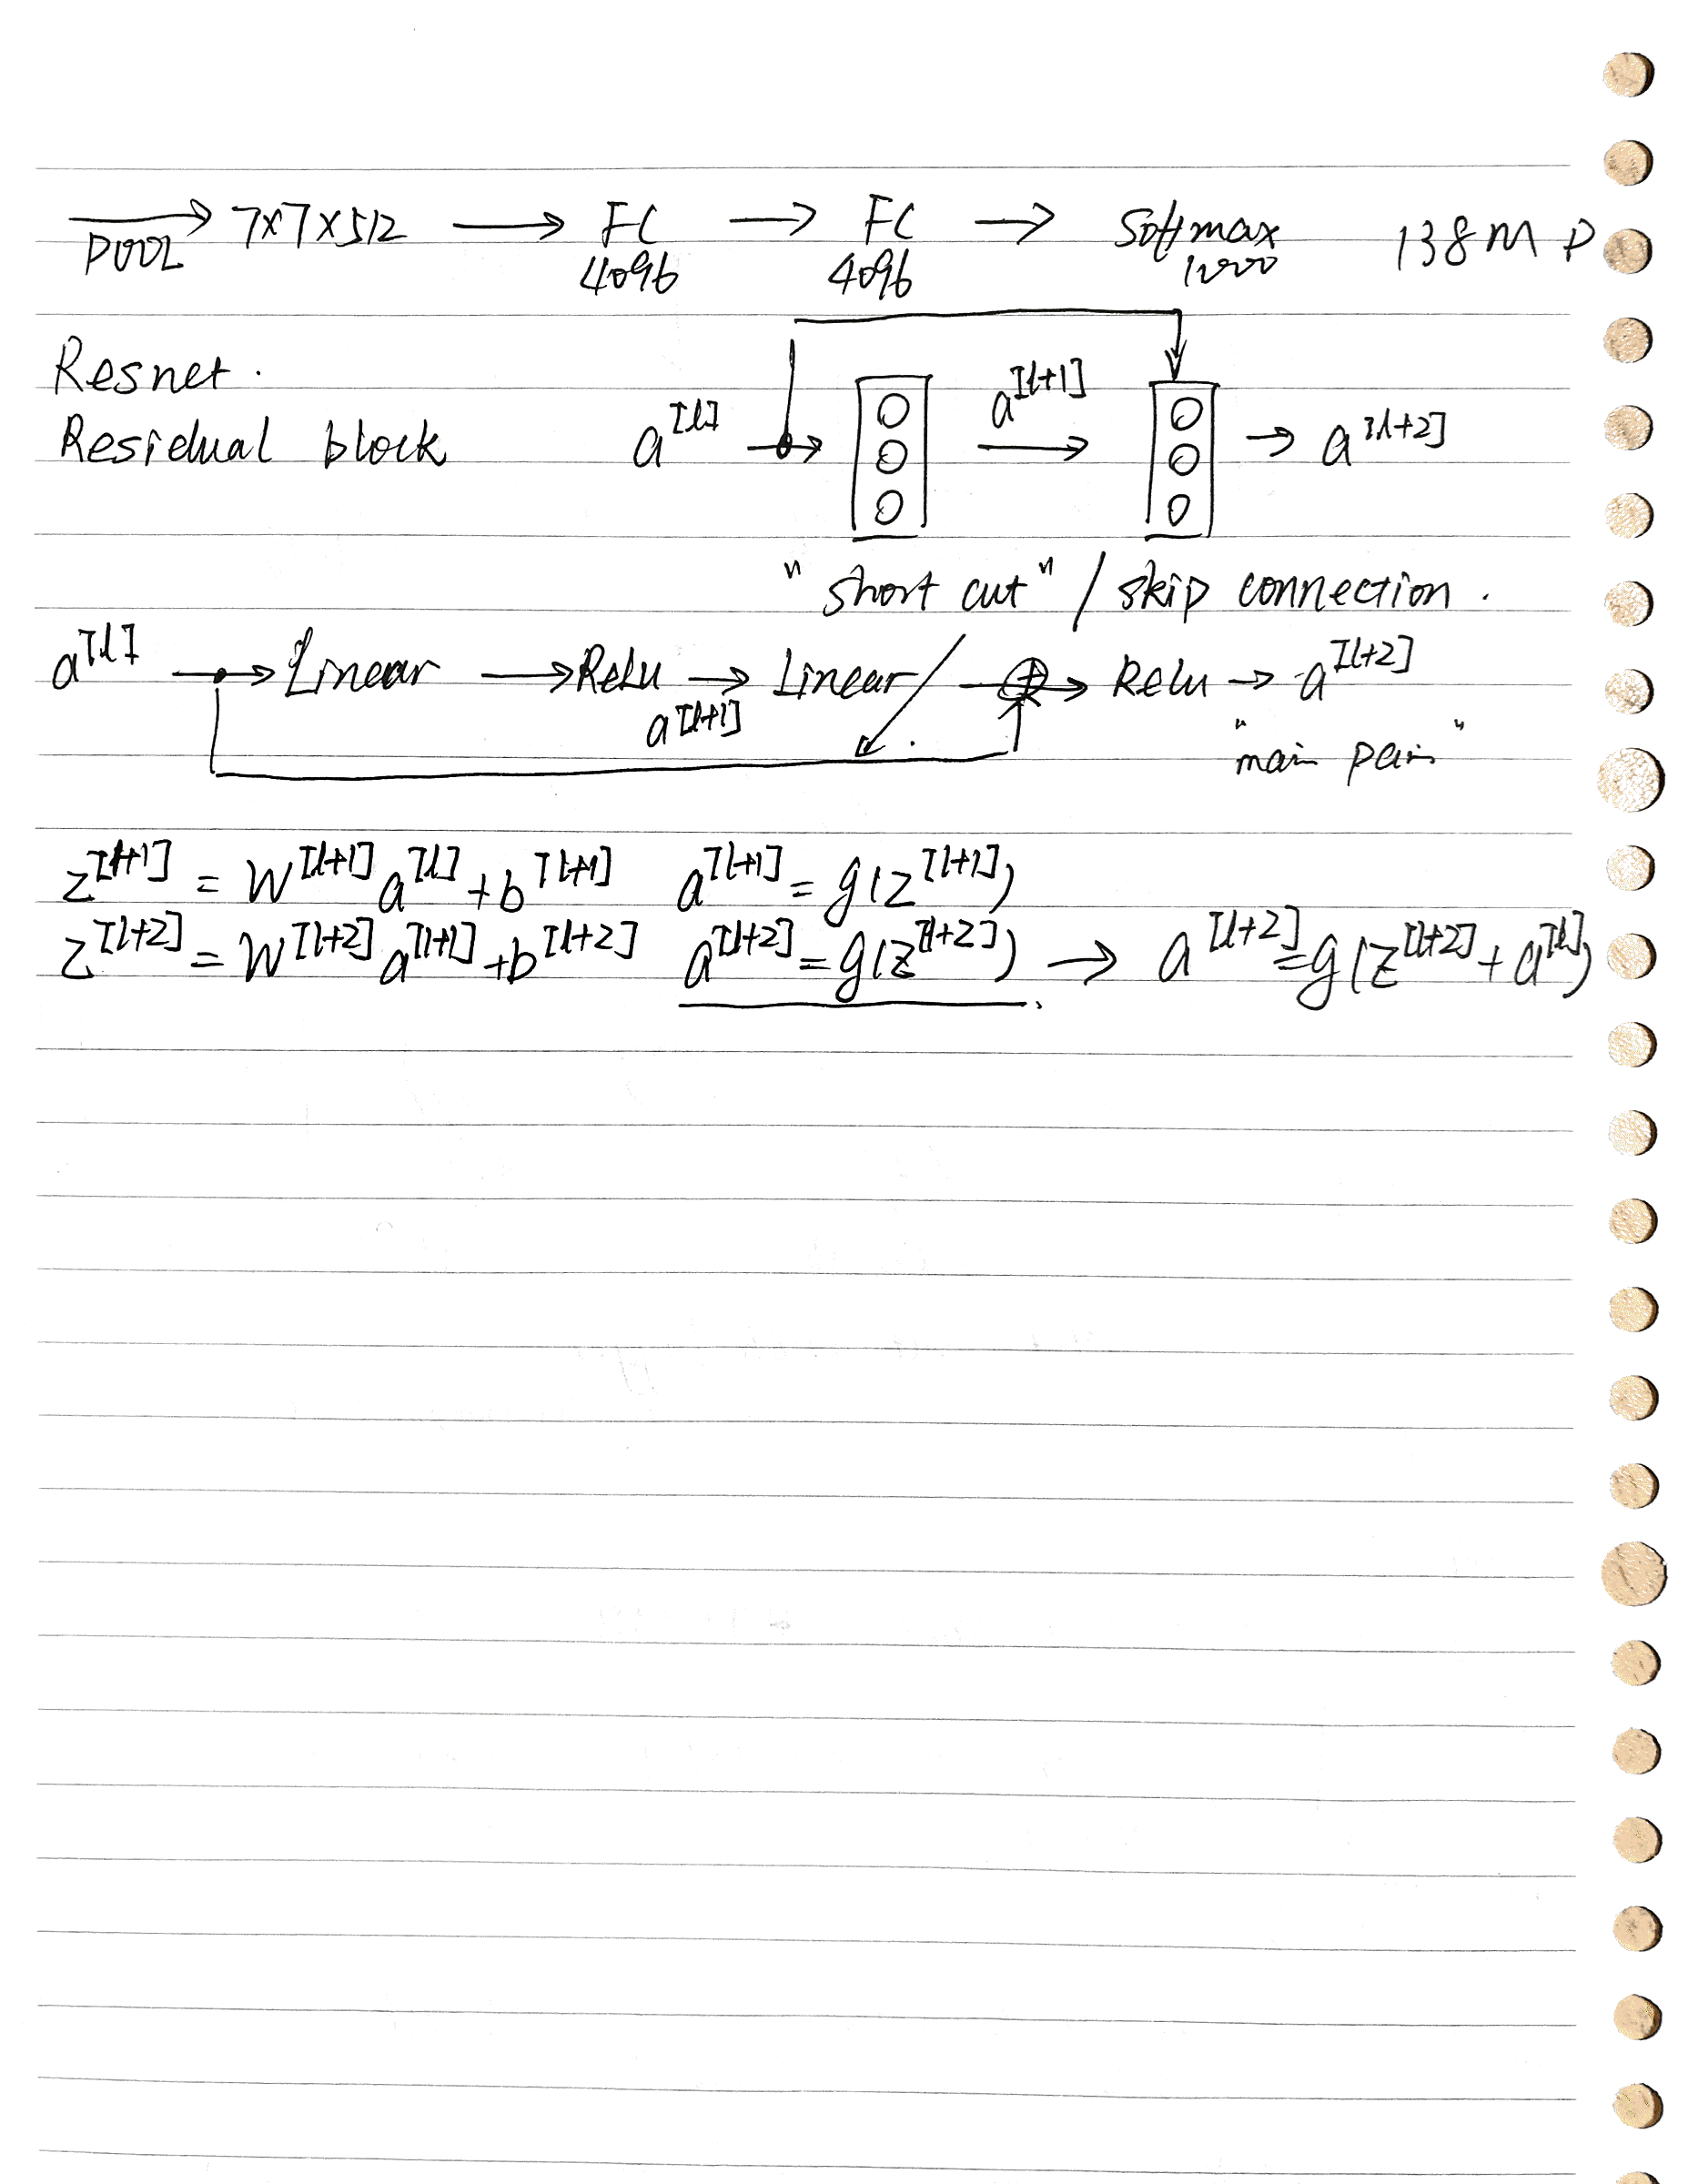 POOL → 7×7×512 → FC → FC → Softmax 138M P
4096 4096 1000
Resnet.
a^[l+1]
Residual block a^[l] → → a^[l+2]
"short cut" / skip connection.
a^[l] → Linear → Relu → Linear → ⊕ → Relu → a^[l+2]
a^[l+1]
"main"
z^[l+1] = W^[l+1] a^[l] + b^[l+1] a^[l+1] = g(z^[l+1])
z^[l+2] = W^[l+2] a^[l+1] + b^[l+2] a^[l+2] = g(z^[l+2]) → a^[l+2] = g(z^[l+2] + a^[l])